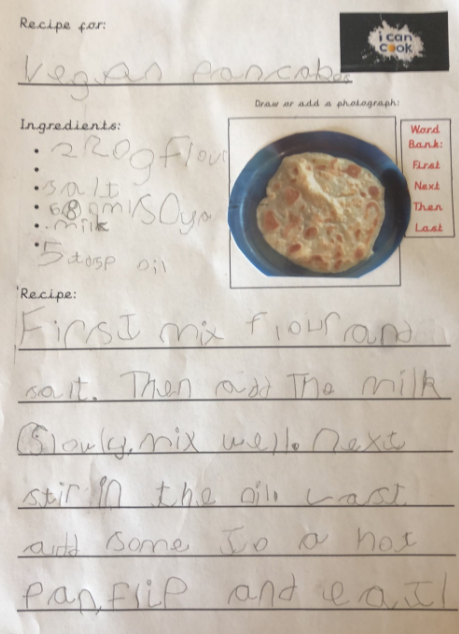 Recipe for:
i can
cook
Vegan pancakes
Draw or add a photograph:
Ingredients:
Word
Bank:
First
Next
Then
Last
220g flour
salt
ml soya
milk
5 tbsp oil
Recipe:
First mix flour and
salt. Then add The milk
Slowly. mix well. next
stir in the oil. Last
add some To a hot
pan, flip and eat!